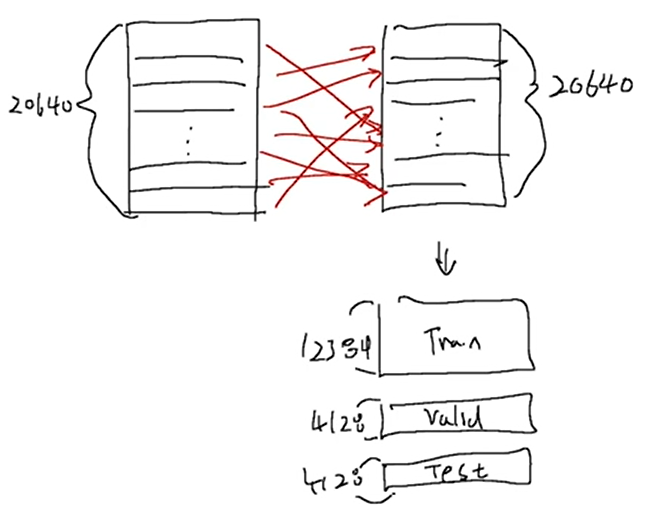 20640
20640
12384 Train
4128 Valid
4128 Test